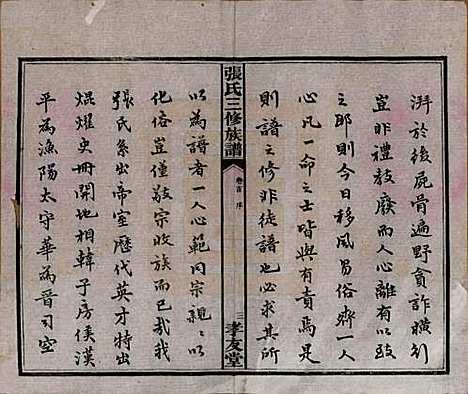 湃於後屍骨遍野貪詐橫行
豈非禮教廢而人心離有以致
之耶則今日移風易俗齊一人
心凡一命之士皆與有責焉是
則譜之修非徒譜也必求其所
張氏三修族譜
卷首 序
三 孝友堂
以為譜者一人心範同宗親親以
化俗豈僅敬宗收族而已哉我
張氏系出帝室歷代英才特出
焜燿史冊開地相韓子房侯漢
平為漁陽太守華為晉司空